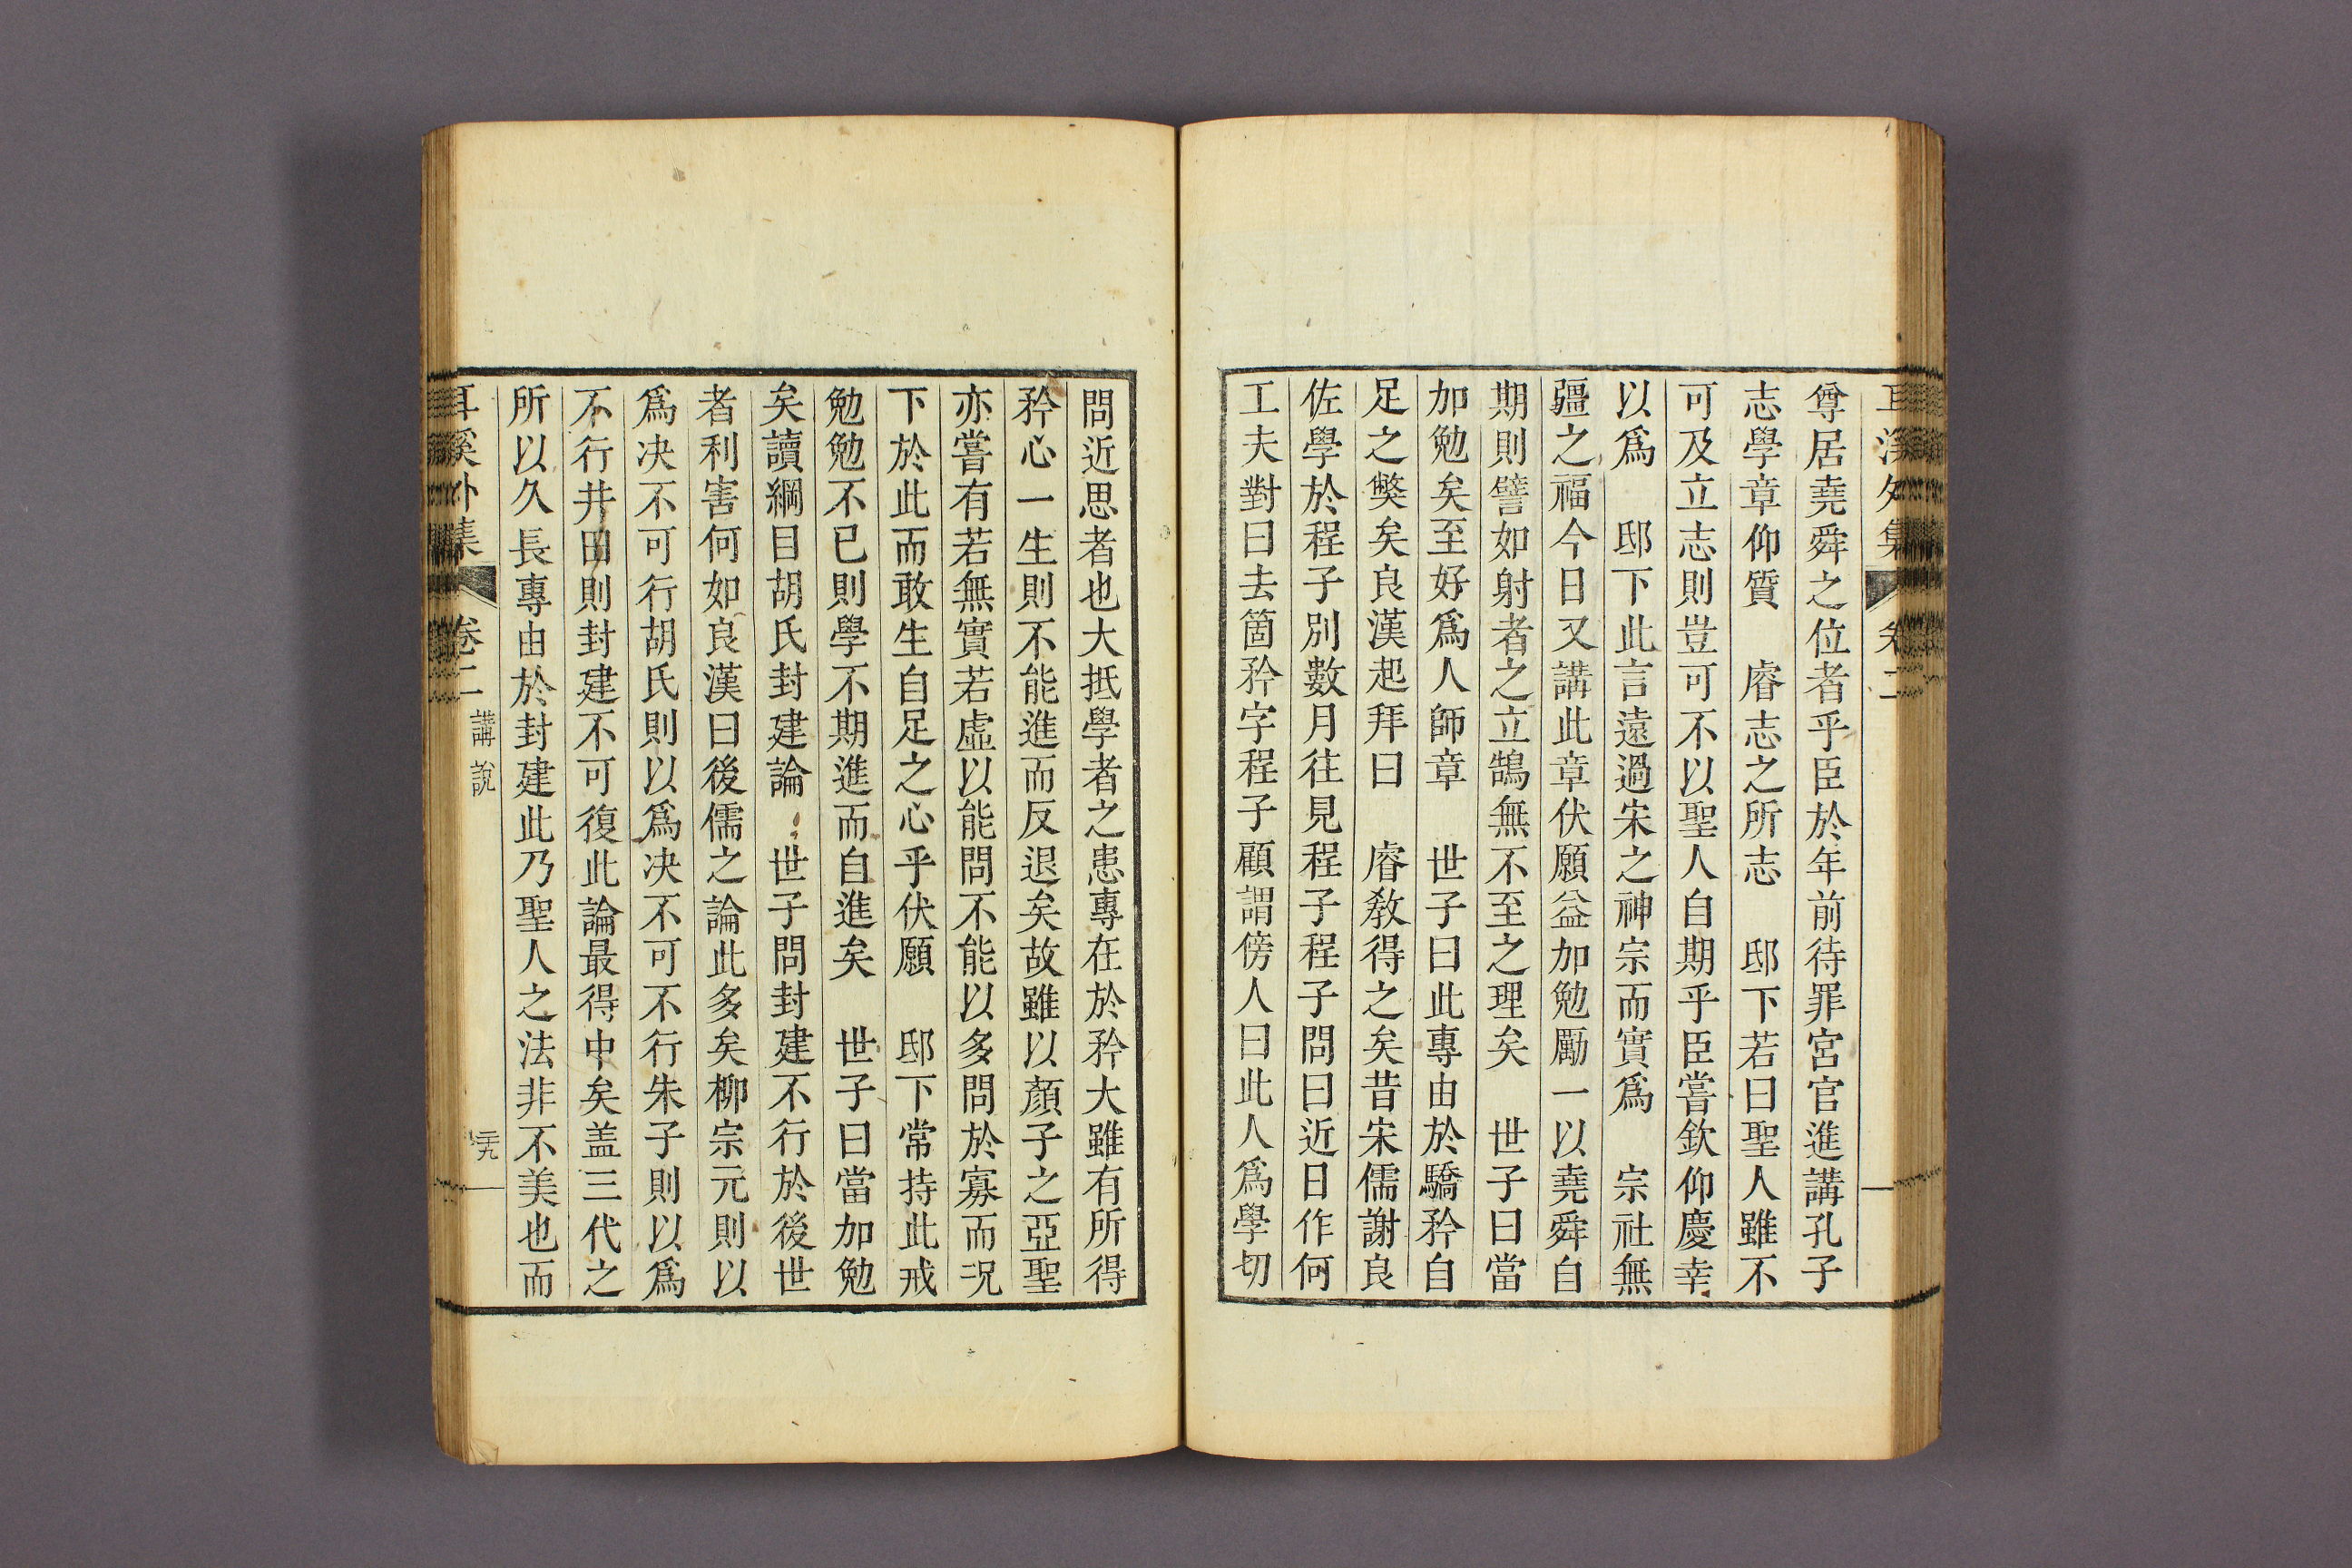 耳溪外集 卷二
尊居堯舜之位者乎臣於年前待罪宮官進講孔子
志學章仰質 睿志之所志 邸下若曰聖人雖不
可及立志則豈可不以聖人自期乎臣嘗欽仰慶幸
以爲 邸下此言遠過宋之神宗而實爲 宗社無
疆之福今日又講此章伏願益加勉勵一以堯舜自
期則譬如射者之立鵠無不至之理矣 世子曰當
加勉矣至好爲人師章 世子曰此專由於驕矜自
足之獘矣良漢起拜曰 睿敎得之矣昔宋儒謝良
佐學於程子別數月往見程子程子問曰近日作何
工夫對曰去箇矜字程子顧謂傍人曰此人爲學切
問近思者也大抵學者之患專在於矜大雖有所得
矜心一生則不能進而反退矣故雖以顏子之亞聖
亦嘗有若無實若虛以能問不能以多問於寡而况
下於此而敢生自足之心乎伏願 邸下常持此戒
勉勉不已則學不期進而自進矣 世子曰當加勉
矣讀綱目胡氏封建論 世子問封建不行於後世
者利害何如良漢曰後儒之論此多矣柳宗元則以
爲决不可行胡氏則以爲决不可不行朱子則以爲
不行井田則封建不可復此論最得中矣盖三代之
所以久長專由於封建此乃聖人之法非不美也而
耳溪外集 卷二 講說 三九